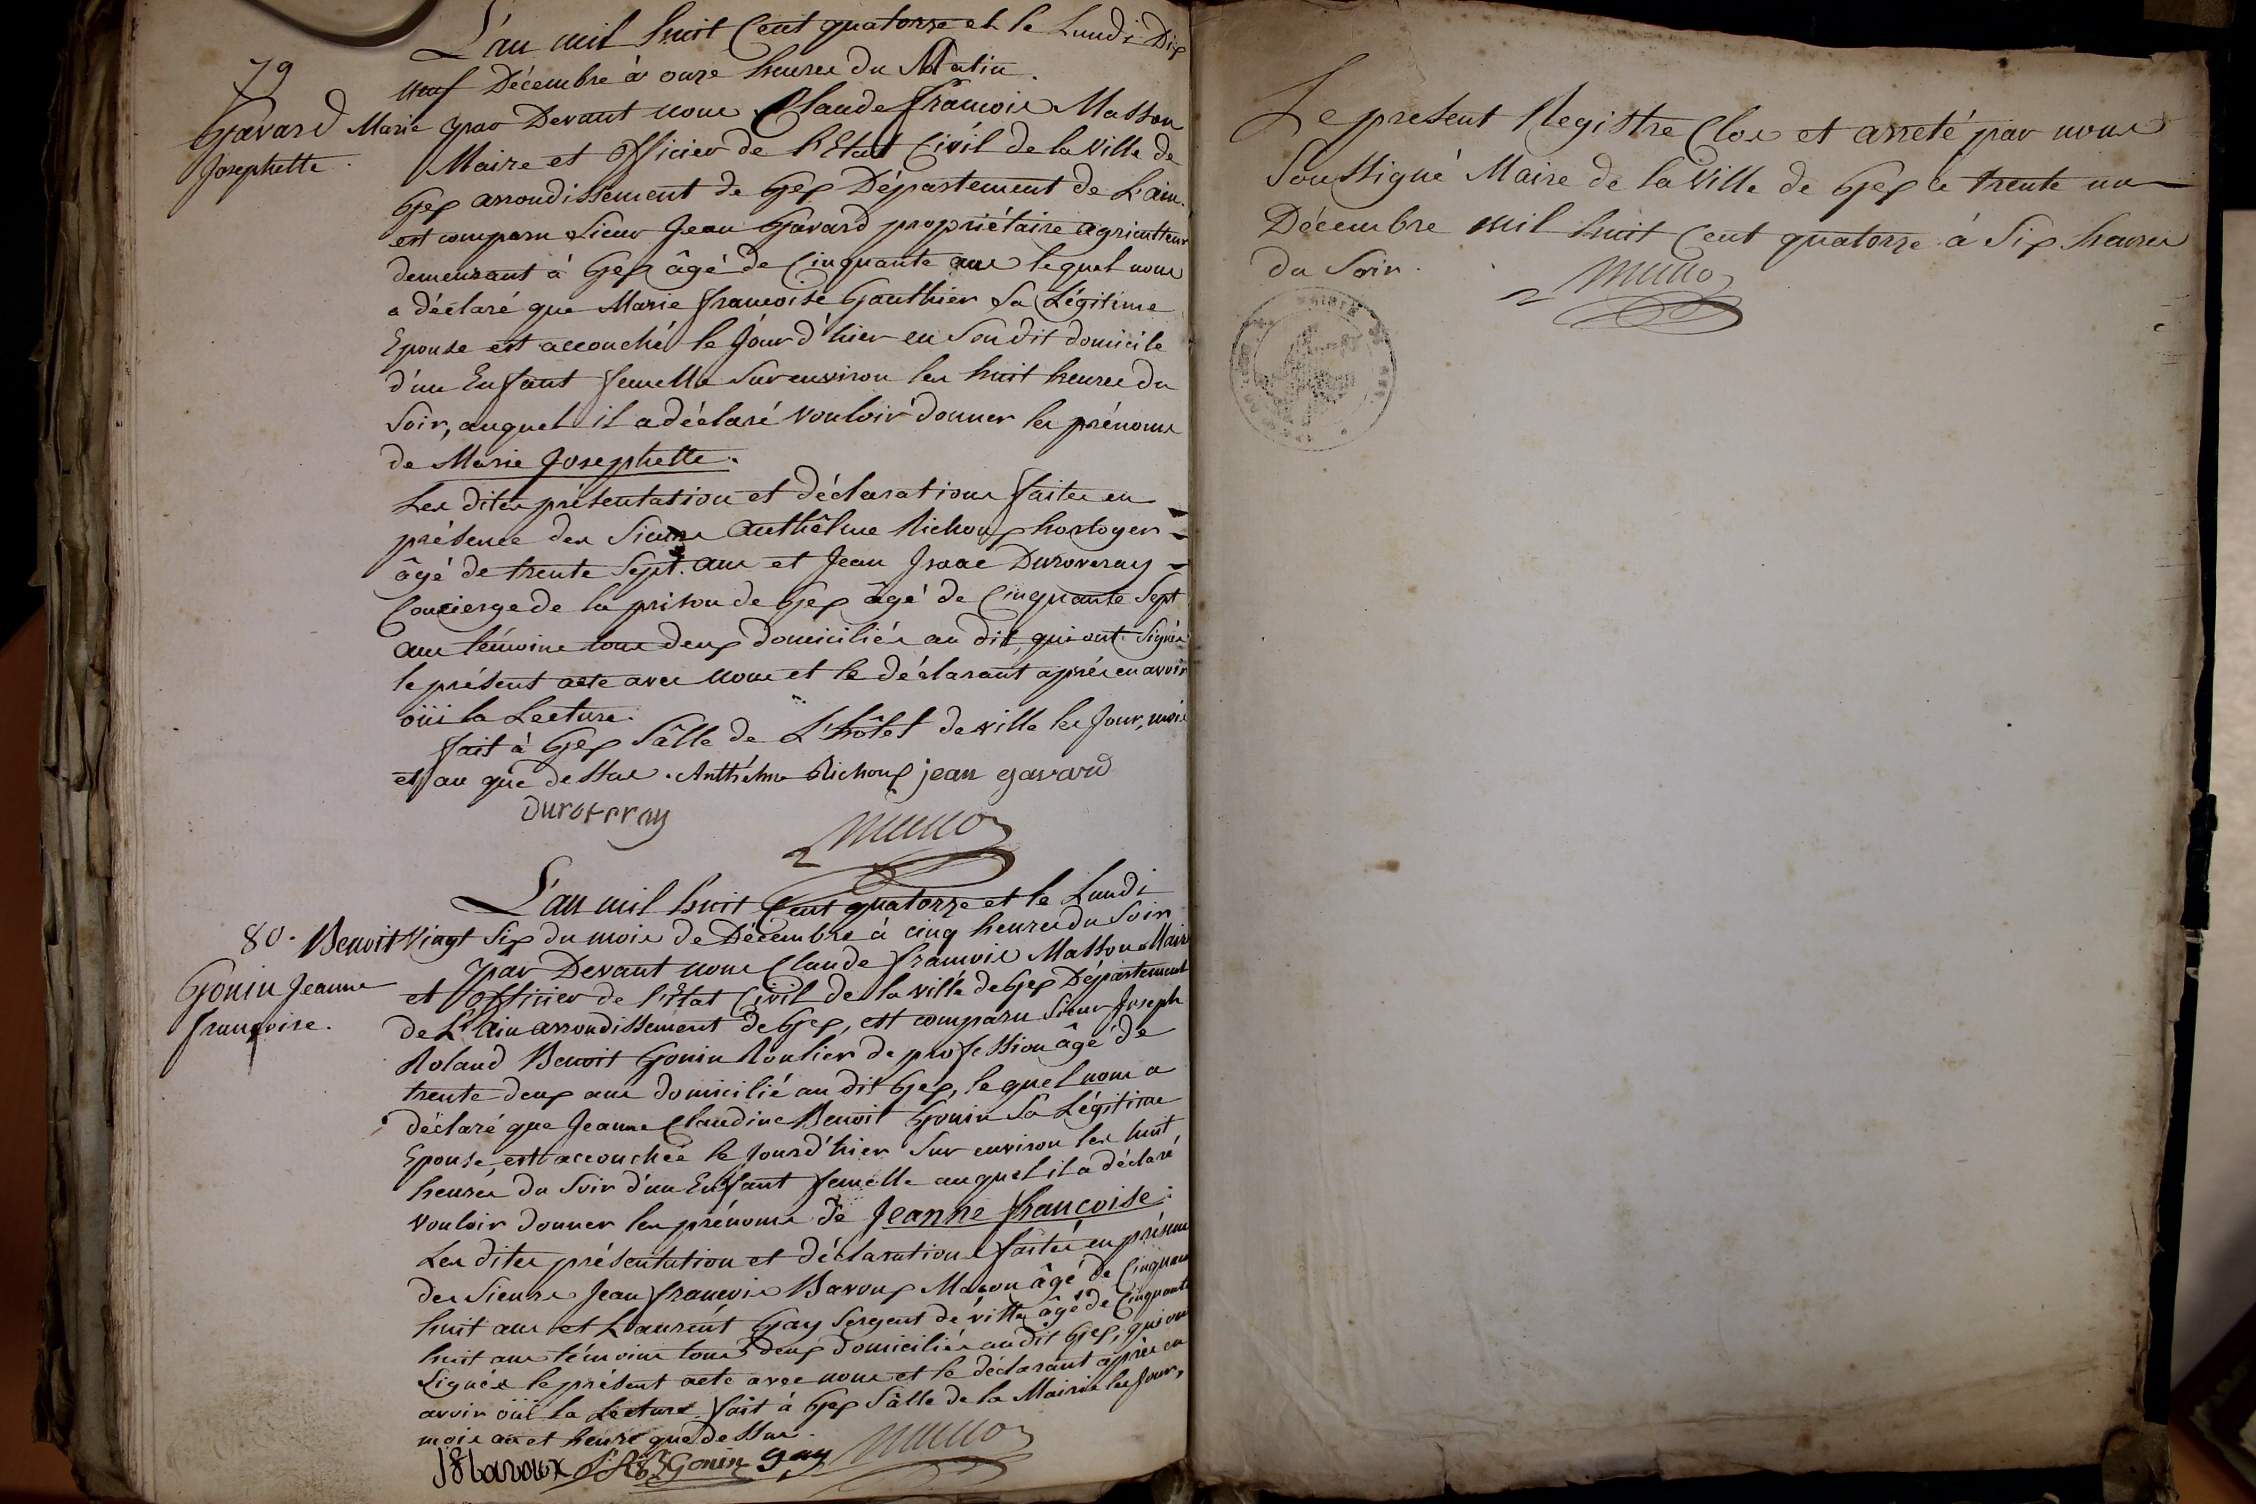 L'an mil huit Cent quatorze et le Lundi Dix
neuf Décembre à onze heures du Matin.
79
Gavard Marie
Josephette.
par Devant nous Claude françois Masson
Maire et Officier de l'Etat Civil de la Ville de
Gex arrondissement de Gex Département de L'ain.
est comparu Sieur Jean Gavard propriétaire agriculteur
demeurant à Gex âgé de Cinquante ans lequel nous
a déclaré que Marie françoise Gauthier Sa Légitime
Epouse est accouché le Jour d'hier en Son dit domicile
d'un Enfant femelle Sur environ les huit heures du
Soir, auquel il a déclaré vouloir donner les prénoms
de Marie Josephette.
Les dites présentation et déclarations faites en
présence des Sieurs Anthêlme Richoux horloger
âgé de trente Sept ans et Jean Isaac Duroveray
Concierge de la prison de Gex âgé de Cinquante Sept
ans témoins tous deux domiciliés au dit, qui ont Signés
le présent acte avec nous et le déclarant après en avoir
oüi la Lecture.
fait à Gex Sâlle de L'hôtel de ville les Jour, mois
et an que dessus. Anthelme Richoux jean gavard
Duroveray
L'an mil huit Cent quatorze et le Lundi
Vingt Six du mois de Décembre à cinq heures du Soir
80. Benoit
Gonin Jeanne
françoise.
par Devant nous Claude françois Masson Maire
et Officier de l'Etat Civil de la ville de Gex Département
de L'Ain arrondissement de Gex, est comparu Sieur Joseph
Roland Benoit Gonin Roulier de profession âgé de
trente deux ans domicilié au dit Gex, lequel nous a
déclaré que Jeanne Claudine Benoit Gonin Sa Légitime
Epouse, est accouchée le Jourd'hier Sur environ les huit
heures du Soir d'un Enfant femelle auquel il a déclaré
vouloir donner les prénoms de Jeanne françoise.
Les dites présentation et déclarations faites en présence
des Sieurs Jean françois Baroux Maçon âgé de Cinquante
huit ans et Laurent Gay Sergent de ville âgé de Cinquante
huit ans témoins tous deux domiciliés au dit Gex, qui ont
Signés le présent acte avec nous et le déclarant après en
avoir oüi la Lecture fait à Gex Sâlle de la Mairie les Jour,
mois an et heure que dessus.
Gonin gay
Le présent Registre Clos et arreté par nous
Soussigné Maire de la Ville de Gex ce trente un
Décembre mil huit Cent quatorze à Six heures
du Soir.
MAIRIE